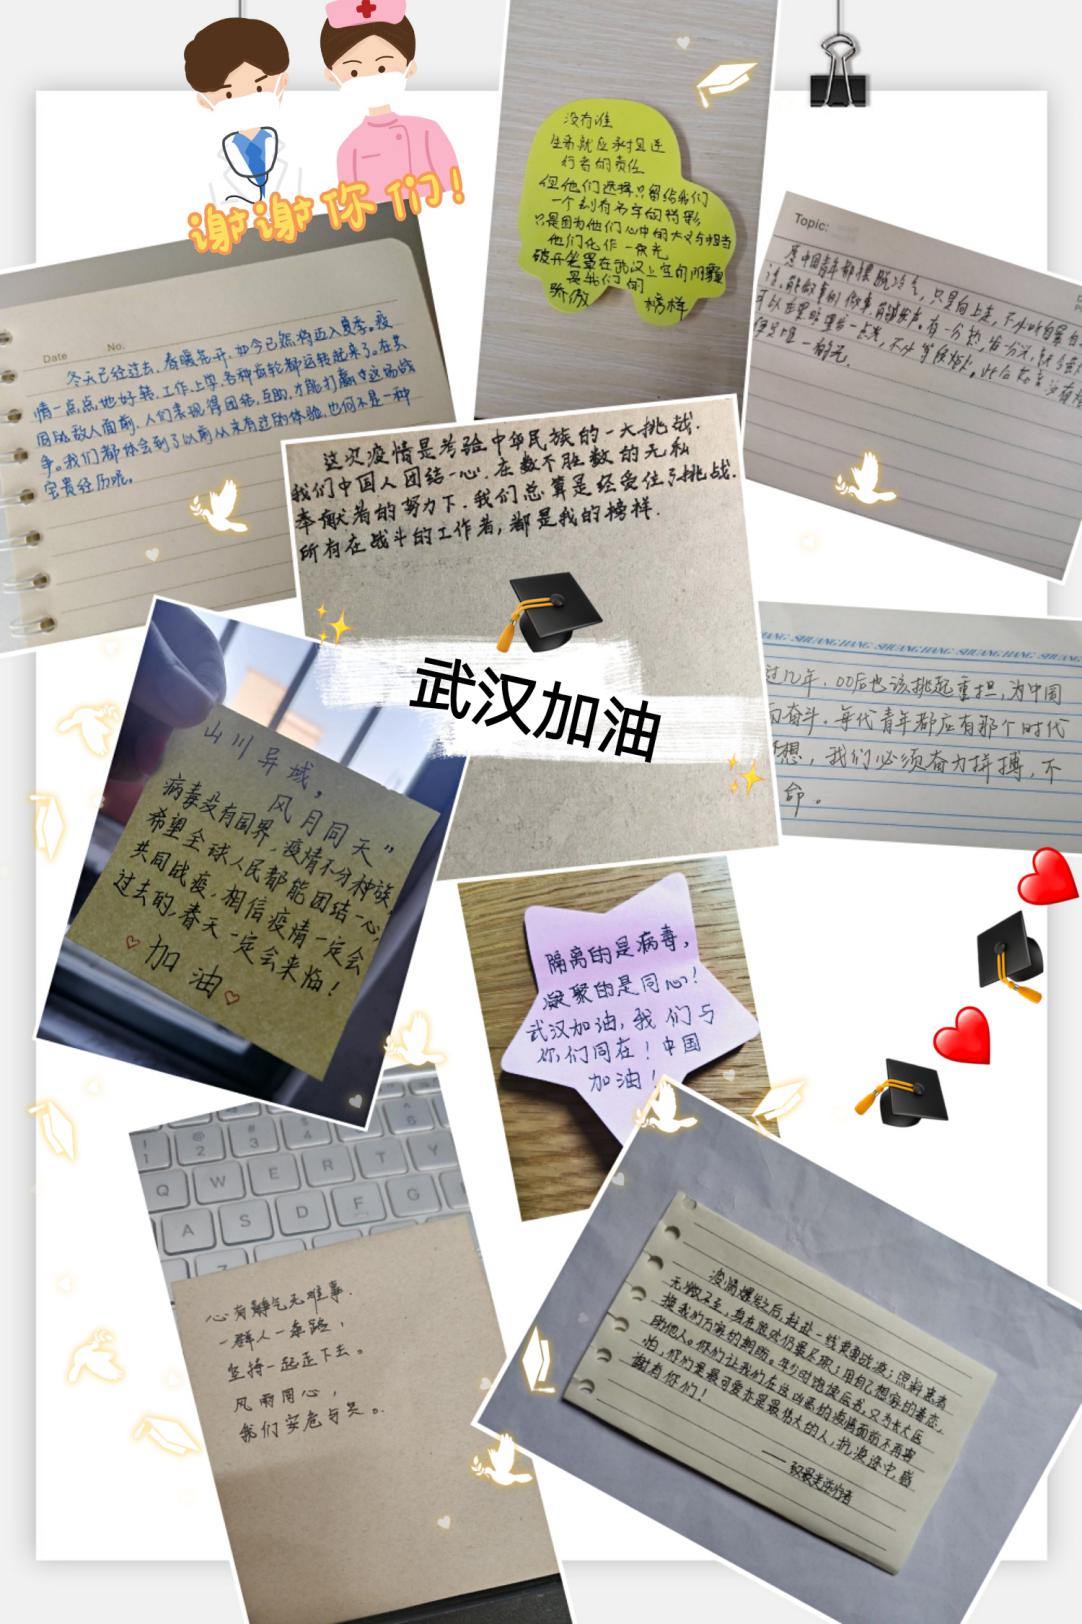 谢谢你们!
没有谁
生来就应承担逆
行者的责任
但他们选择只留给我们
一个刻有名字的背影
只是因为他们心中的大义与担当
他们化作一束光
破开笼罩在武汉上空的阴霾
是我们的
骄傲 榜样
Topic:
愿中国青年都摆脱冷气,只是向上走,不必听自暴自
有一分热,发一分光
可以在黑暗里发一点光,不必等候炬火。此后
Date No.
冬天已经过去,春暖花开,如今已然将迈入夏季。疫
情一点点地好转,工作上学,各种齿轮都运转起来了。在共
同的敌人面前,人们表现得团结,互助,才能打赢这场战
争。我们都体会到了以前从未有过的体验,也何不是一种
宝贵经历呢。
这次疫情是考验中华民族的一大挑战.
我们中国人团结一心.在数不胜数的无私
奉献者的努力下.我们总算是经受住了挑战.
所有在战斗的工作者,都是我的榜样.
武汉加油
SHUANGHANG SHUANGHANG SHUANGHANG
过几年,00后也该挑起重担,为中国
而奋斗。每代青年都应有那个时代
想,我们必须奋力拼搏,不
命。
山川异域,
风月同天”
病毒没有国界,疫情不分种族,
希望全球人民都能团结一心,
共同战疫,相信疫情一定会
过去的,春天一定会来临!
加油
隔离的是病毒,
凝聚的是同心!
武汉加油,我们与
你们同在!中国
加油!
! @ 2 # 3 $ 4
Q W E R T Y
A S D F G
Z
心有静气无难事.
一群人一条路,
坚持一起走下去。
风雨同心,
我们安危与共。
疫情爆发之后,赴赴一线英勇战疫;照料患者
无微不至,身在险处仍义不容辞;用自己想家的毒症,
换我们万家的
助他人。你们让我们在这凶恶的病情面前不再害
怕,你们是最可爱亦是最伟大的人,抗疫途中,感
谢有你们!
——致最美逆行者